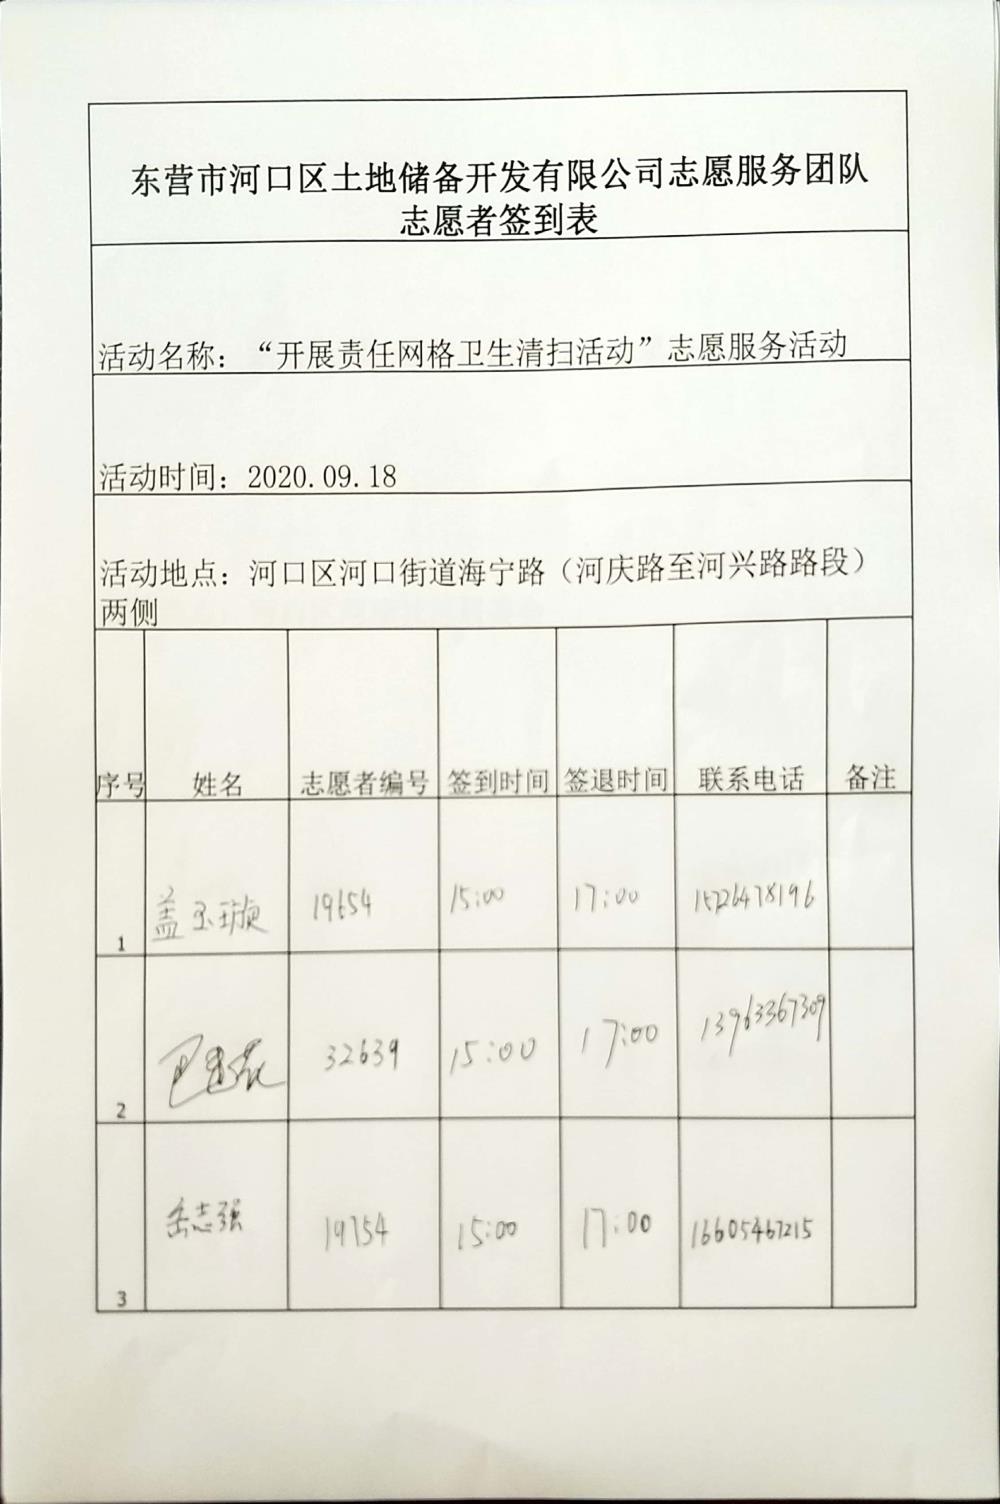 东营市河口区土地储备开发有限公司志愿服务团队
志愿者签到表
活动名称：“开展责任网格卫生清扫活动”志愿服务活动
活动时间：2020.09.18
活动地点：河口区河口街道海宁路（河庆路至河兴路路段）
两侧
序号 姓名 志愿者编号 签到时间 签退时间 联系电话 备注
1 盖玉璇 19654 15:00 17:00 15726478196
2 32639 15:00 17:00 13963367309
3 岳志强 19754 15:00 17:00 16605467215